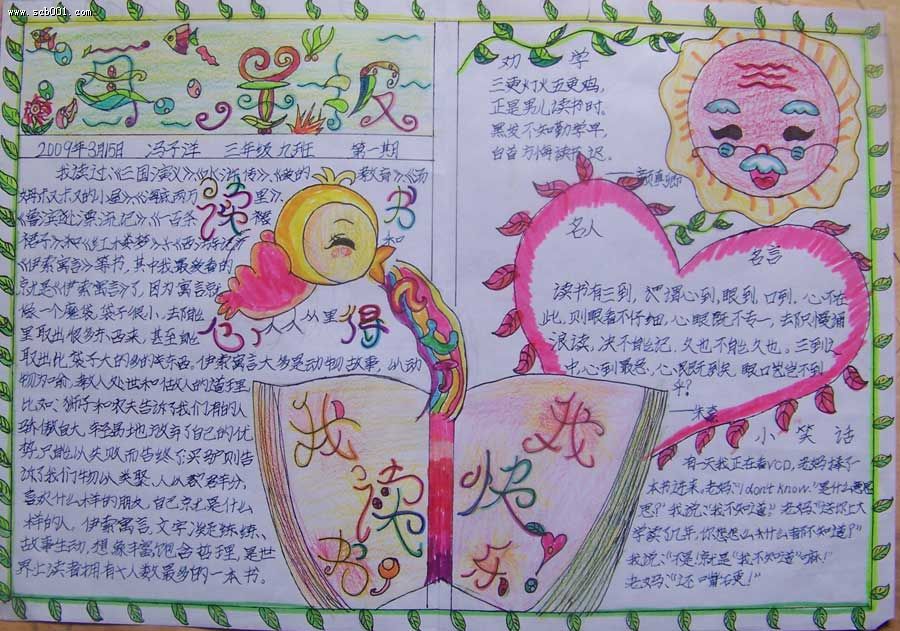 www.szb001.com
手童报
2009年3月15日 冯子洋 三年级九班 第一期
读书心得
我读过《三国演义》《水浒传》《爱的教育》《汤
姆叔叔的小屋》《海底两万里》
《鲁滨逊漂流记》
裙子》和《红楼梦》《西游记》和
《伊索寓言》等书,其中我最爱看的
就是《伊索寓言》了,因为寓言就
像一个魔袋,袋子很小,去能从里
里取出很多东西来,甚至能
取出比袋子大的多的东西。伊索寓言大多是动物故事,以动
物为喻,教人处世和做人的道理
比如:狮子和农夫告诉了我们有的人
骄傲自大,轻易地放弃了自己的优
势,只能以失败而告终了买驴则告
诉了我们物以类聚,人以群分,
喜欢什么样的朋友,自己就是什么
样的人。伊索寓言,文字凝练,
故事生动,想象丰富,饱含哲理,是世
界上读者拥有人数最多的一本书。
我读书
我快乐
劝学
三更灯火五更鸡,
正是男儿读书时。
黑发不知勤学早,
白首方悔读书迟。
——颜真卿
名人
名言
读书有三到,谓心到,眼到,口到,心不在
此,则眼看不仔细,心眼既不专一,去只漫诵
浪读,决不能记,久也不能久也。三到之
中心到最急,心既到矣,眼口岂不到
乎?
——朱熹
小笑话
有一天我正在看VCD,老妈捧了一
本书进来,老妈:"I don't know."是什么意思
思?"我说:"我不知道。"老妈:"送你上大
学读了几年,你怎么什么都不知道?"
我说:"不是!就是"我不知道"嘛!"
老妈:"还嘴硬!"